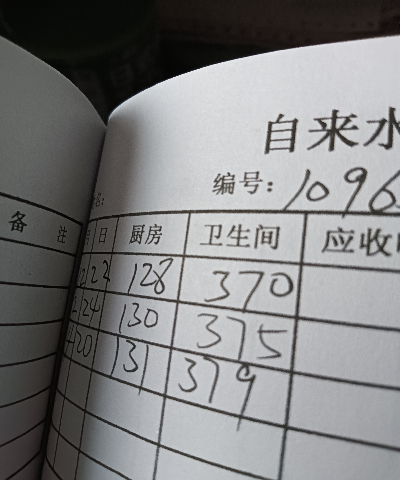 自来水
编号: 1096
备注 月 日 厨房 卫生间 应收
22 128 370
24 130 375
20 131 379